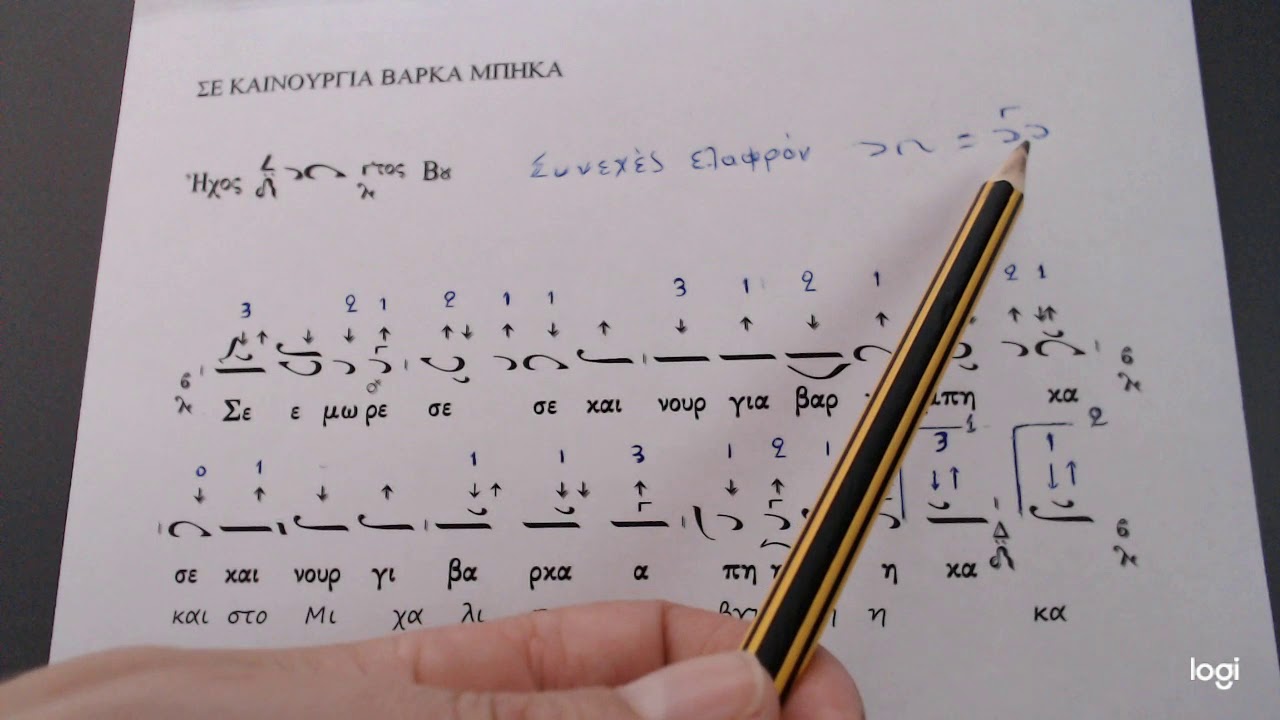 ΣΕ ΚΑΙΝΟΥΡΓΙΑ ΒΑΡΚΑ ΜΠΗΚΑ
Ήχος Βȣ Συνεχές ελαφρόν =
3 2 1 2 1 1 3 1 2 1 2 1
Σε ε μω ρε σε σε και νουρ για βαρ μπη κα
0 1 1 1 3 1 2 1 3 1 1 2
σε και νουρ γι βα ρκα α πη η κα
και στο Μι χα λι η κα
logi